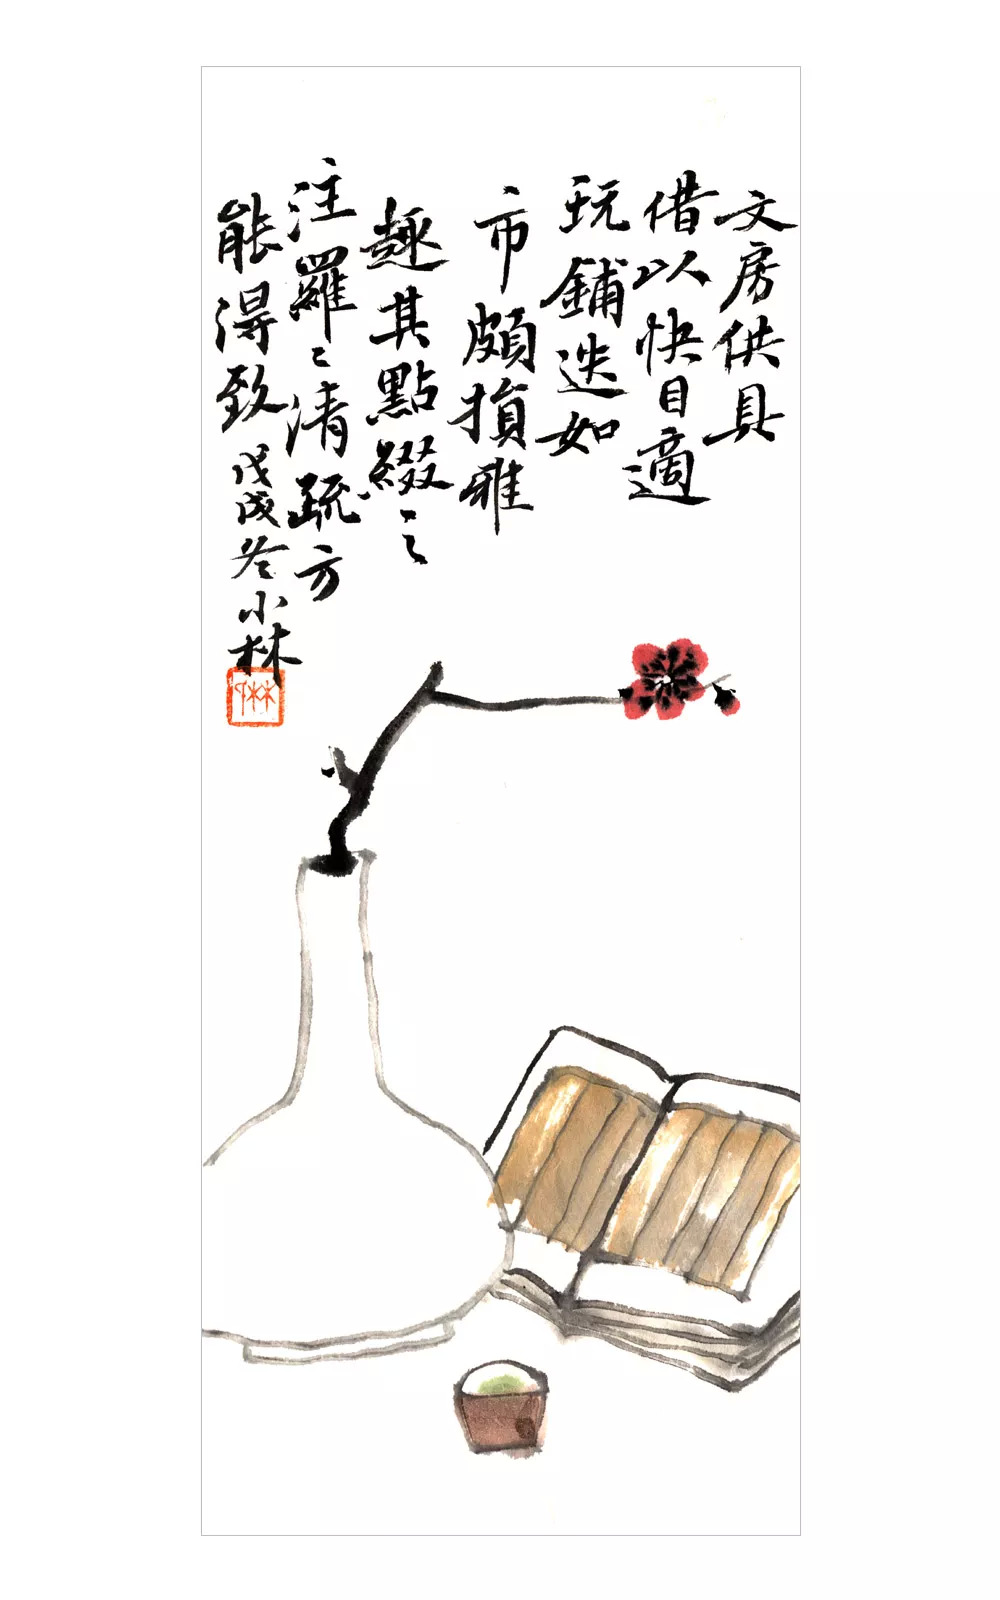 文房供具
借以快目適
玩鋪迭如
市頗損雅
趣其點綴之
注羅〻清疏方
能得致 戊戌冬小林